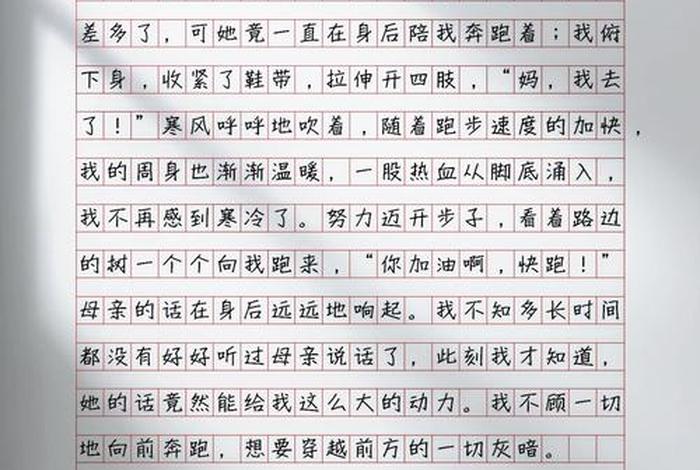 差多了，可她竟一直在身后陪我奔跑着；我俯
下身，收紧了鞋带，拉伸开四肢，“妈，我去
了！”寒风呼呼地吹着，随着跑步速度的加快，
我的周身也渐渐温暖，一股热血从脚底涌入，
我不再感到寒冷了。努力迈开步子，看着路边
的树一个个向我跑来，“你加油啊，快跑！”
母亲的话在身后远远地响起。我不知多长时间
都没有好好听过母亲说话了，此刻我才知道，
她的话竟然能给我这么大的动力。我不顾一切
地向前奔跑，想要穿越前方的一切灰暗。